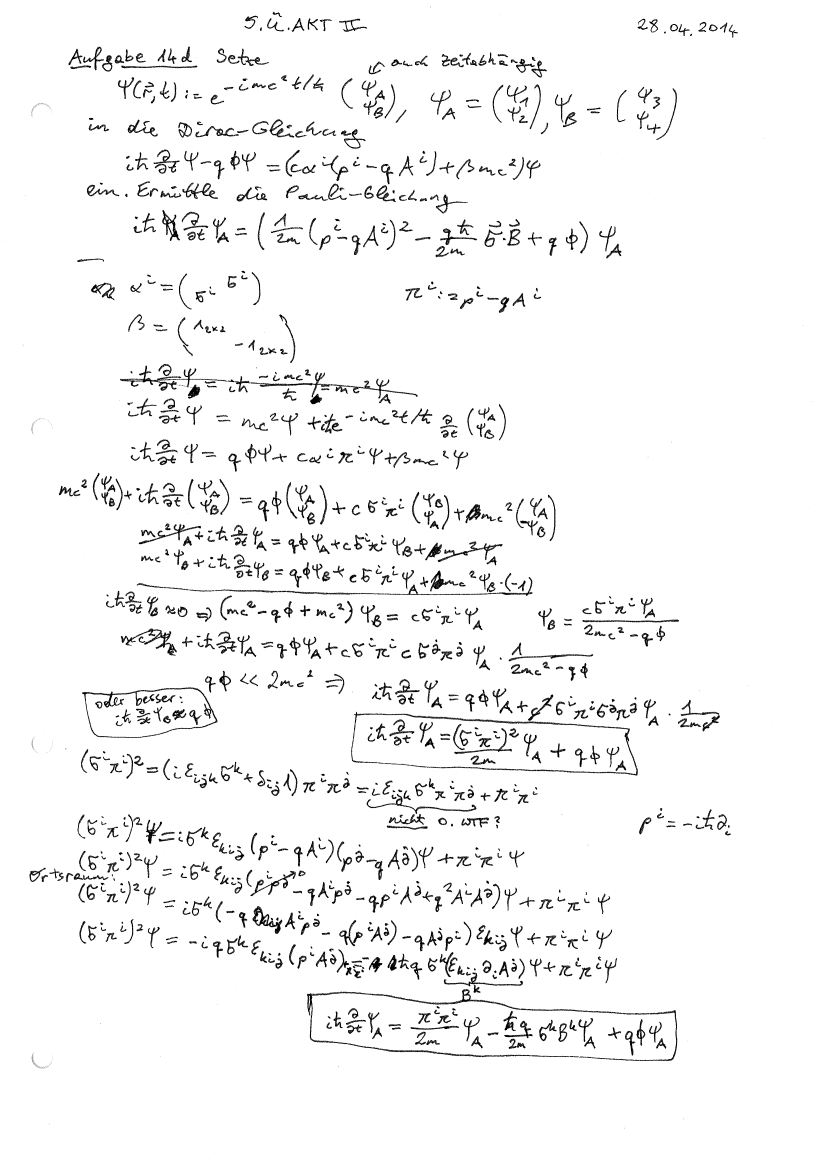 5. Ü. AKT II 28.04.2014
Aufgabe 14d Setze ↙ auch zeitabhängig
Ψ(r⃗,t) := e^{-imc²t/ħ} (Ψ_A Ψ_B), Ψ_A = (Ψ_1 Ψ_2), Ψ_B = (Ψ_3 Ψ_4)
in die Dirac-Gleichung
iħ ∂/∂t Ψ - qΦΨ = (cα^i(p^i - qA^i) + βmc²)Ψ
ein. Ermittle die Pauli-Gleichung
iħ ∂/∂t Ψ_A = (1/2m (p^i - qA^i)² - qħ/2m σ⃗·B⃗ + qΦ) Ψ_A
α^i = (σ^i σ^i) π^i := p^i - qA^i
β = (1_{2x2} -1_{2x2})
iħ ∂/∂t Ψ_A = iħ -imc²Ψ_A/ħ = mc²Ψ_A
iħ ∂/∂t Ψ = mc²Ψ + iħe^{-imc²t/ħ} ∂/∂t (Ψ_A Ψ_B)
iħ ∂/∂t Ψ = qΦΨ + cα^iπ^iΨ + βmc²Ψ
mc²(Ψ_A Ψ_B) + iħ ∂/∂t (Ψ_A Ψ_B) = qΦ(Ψ_A Ψ_B) + cσ^iπ^i(Ψ_B Ψ_A) + mc²(Ψ_A -Ψ_B)
mc²Ψ_A + iħ ∂/∂t Ψ_A = qΦΨ_A + cσ^iπ^iΨ_B + mc²Ψ_A
mc²Ψ_B + iħ ∂/∂t Ψ_B = qΦΨ_B + cσ^iπ^iΨ_A + mc²Ψ_B·(-1)
iħ ∂/∂t Ψ_B ≈ 0 ⇒ (mc² - qΦ + mc²)Ψ_B = cσ^iπ^iΨ_A Ψ_B = cσ^iπ^iΨ_A / 2mc² - qΦ
mc²Ψ_A + iħ ∂/∂t Ψ_A = qΦΨ_A + cσ^iπ^i cσ^jπ^j Ψ_A · 1/2mc² - qΦ
qΦ << 2mc² ⇒ iħ ∂/∂t Ψ_A = qΦΨ_A + c²σ^iπ^iσ^jπ^jΨ_A · 1/2mc²
oder besser:
iħ ∂/∂t Ψ_B ≈ qΦ
iħ ∂/∂t Ψ_A = (σ^iπ^i)²/2m Ψ_A + qΦΨ_A
(σ^iπ^i)² = (iε_{ijk}σ^k + δ_{ij}1)π^iπ^j = iε_{ijk}σ^kπ^iπ^j + π^iπ^i
nicht 0. WTF? p^i = -iħ∂_i
(σ^iπ^i)²Ψ = iσ^kε_{kij}(p^i - qA^i)(p^j - qA^j)Ψ + π^iπ^iΨ
Ortsraum:
(σ^iπ^i)²Ψ = iσ^kε_{kij}(p^ip^j→0 - qA^ip^j - qp^iA^j + q²A^iA^j)Ψ + π^iπ^iΨ
(σ^iπ^i)²Ψ = iσ^k(-qA^ip^j - q(p^iA^j) - qA^jp^i)ε_{kij}Ψ + π^iπ^iΨ
(σ^iπ^i)²Ψ = -iqσ^kε_{kij}(p^iA^j) = -ħqσ^k(ε_{kij}∂_iA^j)Ψ + π^iπ^iΨ
B^k
iħ ∂/∂t Ψ_A = π^iπ^i/2m Ψ_A - ħq/2m σ^kB^kΨ_A + qΦΨ_A